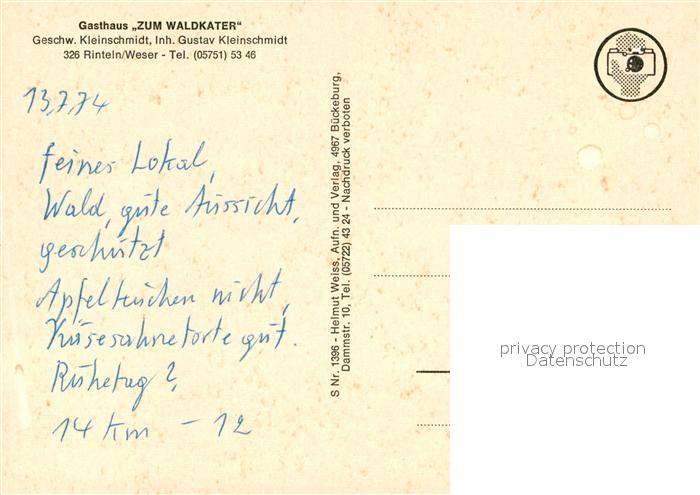 Gasthaus „ZUM WALDKATER“
Geschw. Kleinschmidt, Inh. Gustav Kleinschmidt
326 Rinteln/Weser - Tel. (05751) 53 46
13,7,74
feines Lokal,
Wald, gute Aussicht,
geschützt
Apfelkuchen nicht,
Käsesahnetorte gut.
Ruhetag?,
14 km - 12
S Nr. 1396 - Helmut Weiss, Aufn. und Verlag, 4967 Bückeburg,
Dammstr. 10, Tel. (05722) 43 24 - Nachdruck verboten
privacy protection
Datenschutz